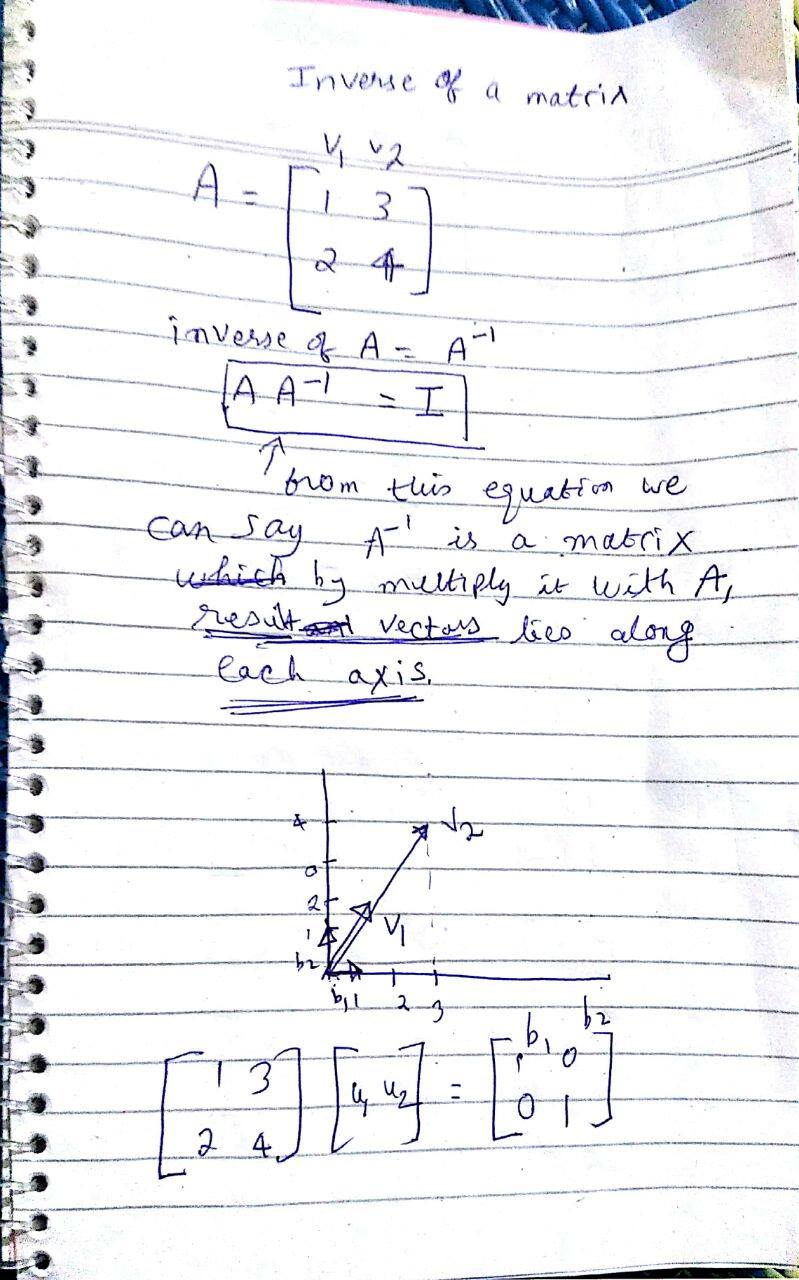 Inverse of a matrix
V1 V2
A = [1 3
2 4]
inverse of A = A⁻¹
A A⁻¹ = I
from this equation we
can say A⁻¹ is a matrix
which by multiply it with A,
result vectors lies along
each axis.
4 V2
0
2
1 V1
b2
b1 1 2 3
b1 b2
[1 3] [u1 u2] = [1 0]
[2 4] [0 1]